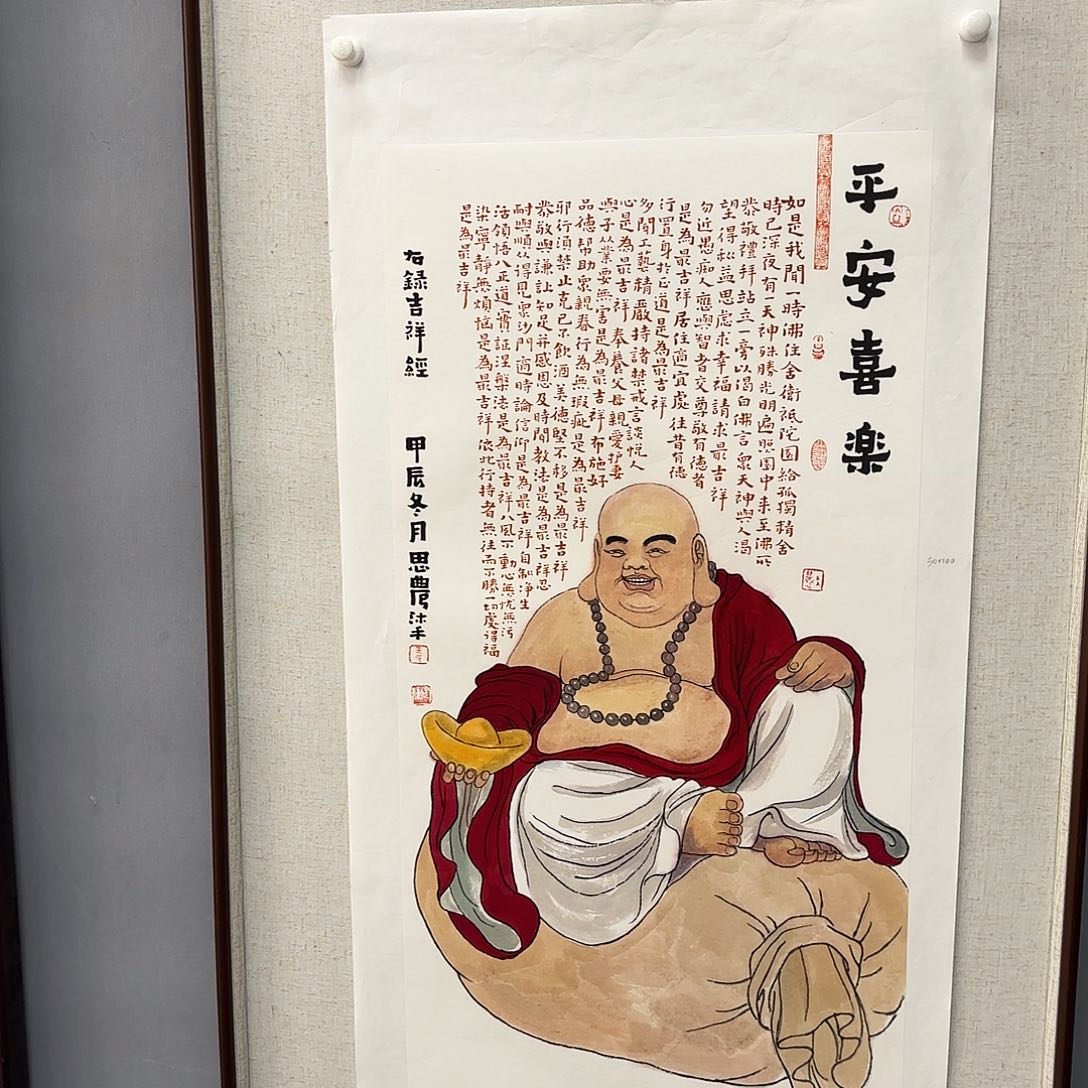 平安喜楽
如是我聞一時佛住舍衛祇陀園給孤獨精舍
時已深夜有一天神殊勝光明遍照園中来至佛所
恭敬禮拜站立一旁以偈白佛言眾天神與人渴
望得利益思慮求幸福請求最吉祥
勿近愚痴人應與智者交尊敬有德者
是為最吉祥居住適宜處往昔有德
行置身於正道是為最吉祥
多聞工藝精嚴持諸禁戒言談悦人
心是為最吉祥奉養父母親愛护妻
與子從業要無害是為最吉祥布施好
品德帮助眾親眷行為無瑕疵是為最吉祥
邪行須禁止克己不飲酒美德堅不移是為最吉祥
恭敬與謙让知足并感恩及時聞教法是為最吉祥忍
耐與順从得見眾沙門適時論信仰是為最吉祥自制净生
活領悟八正道實証涅槃法是為最吉祥八風不動心無忧無污
染寧静無煩惱是為最吉祥依此行持者無往而不勝一切處得福
是為最吉祥
右録吉祥經 甲辰冬月思農沐手
50×100